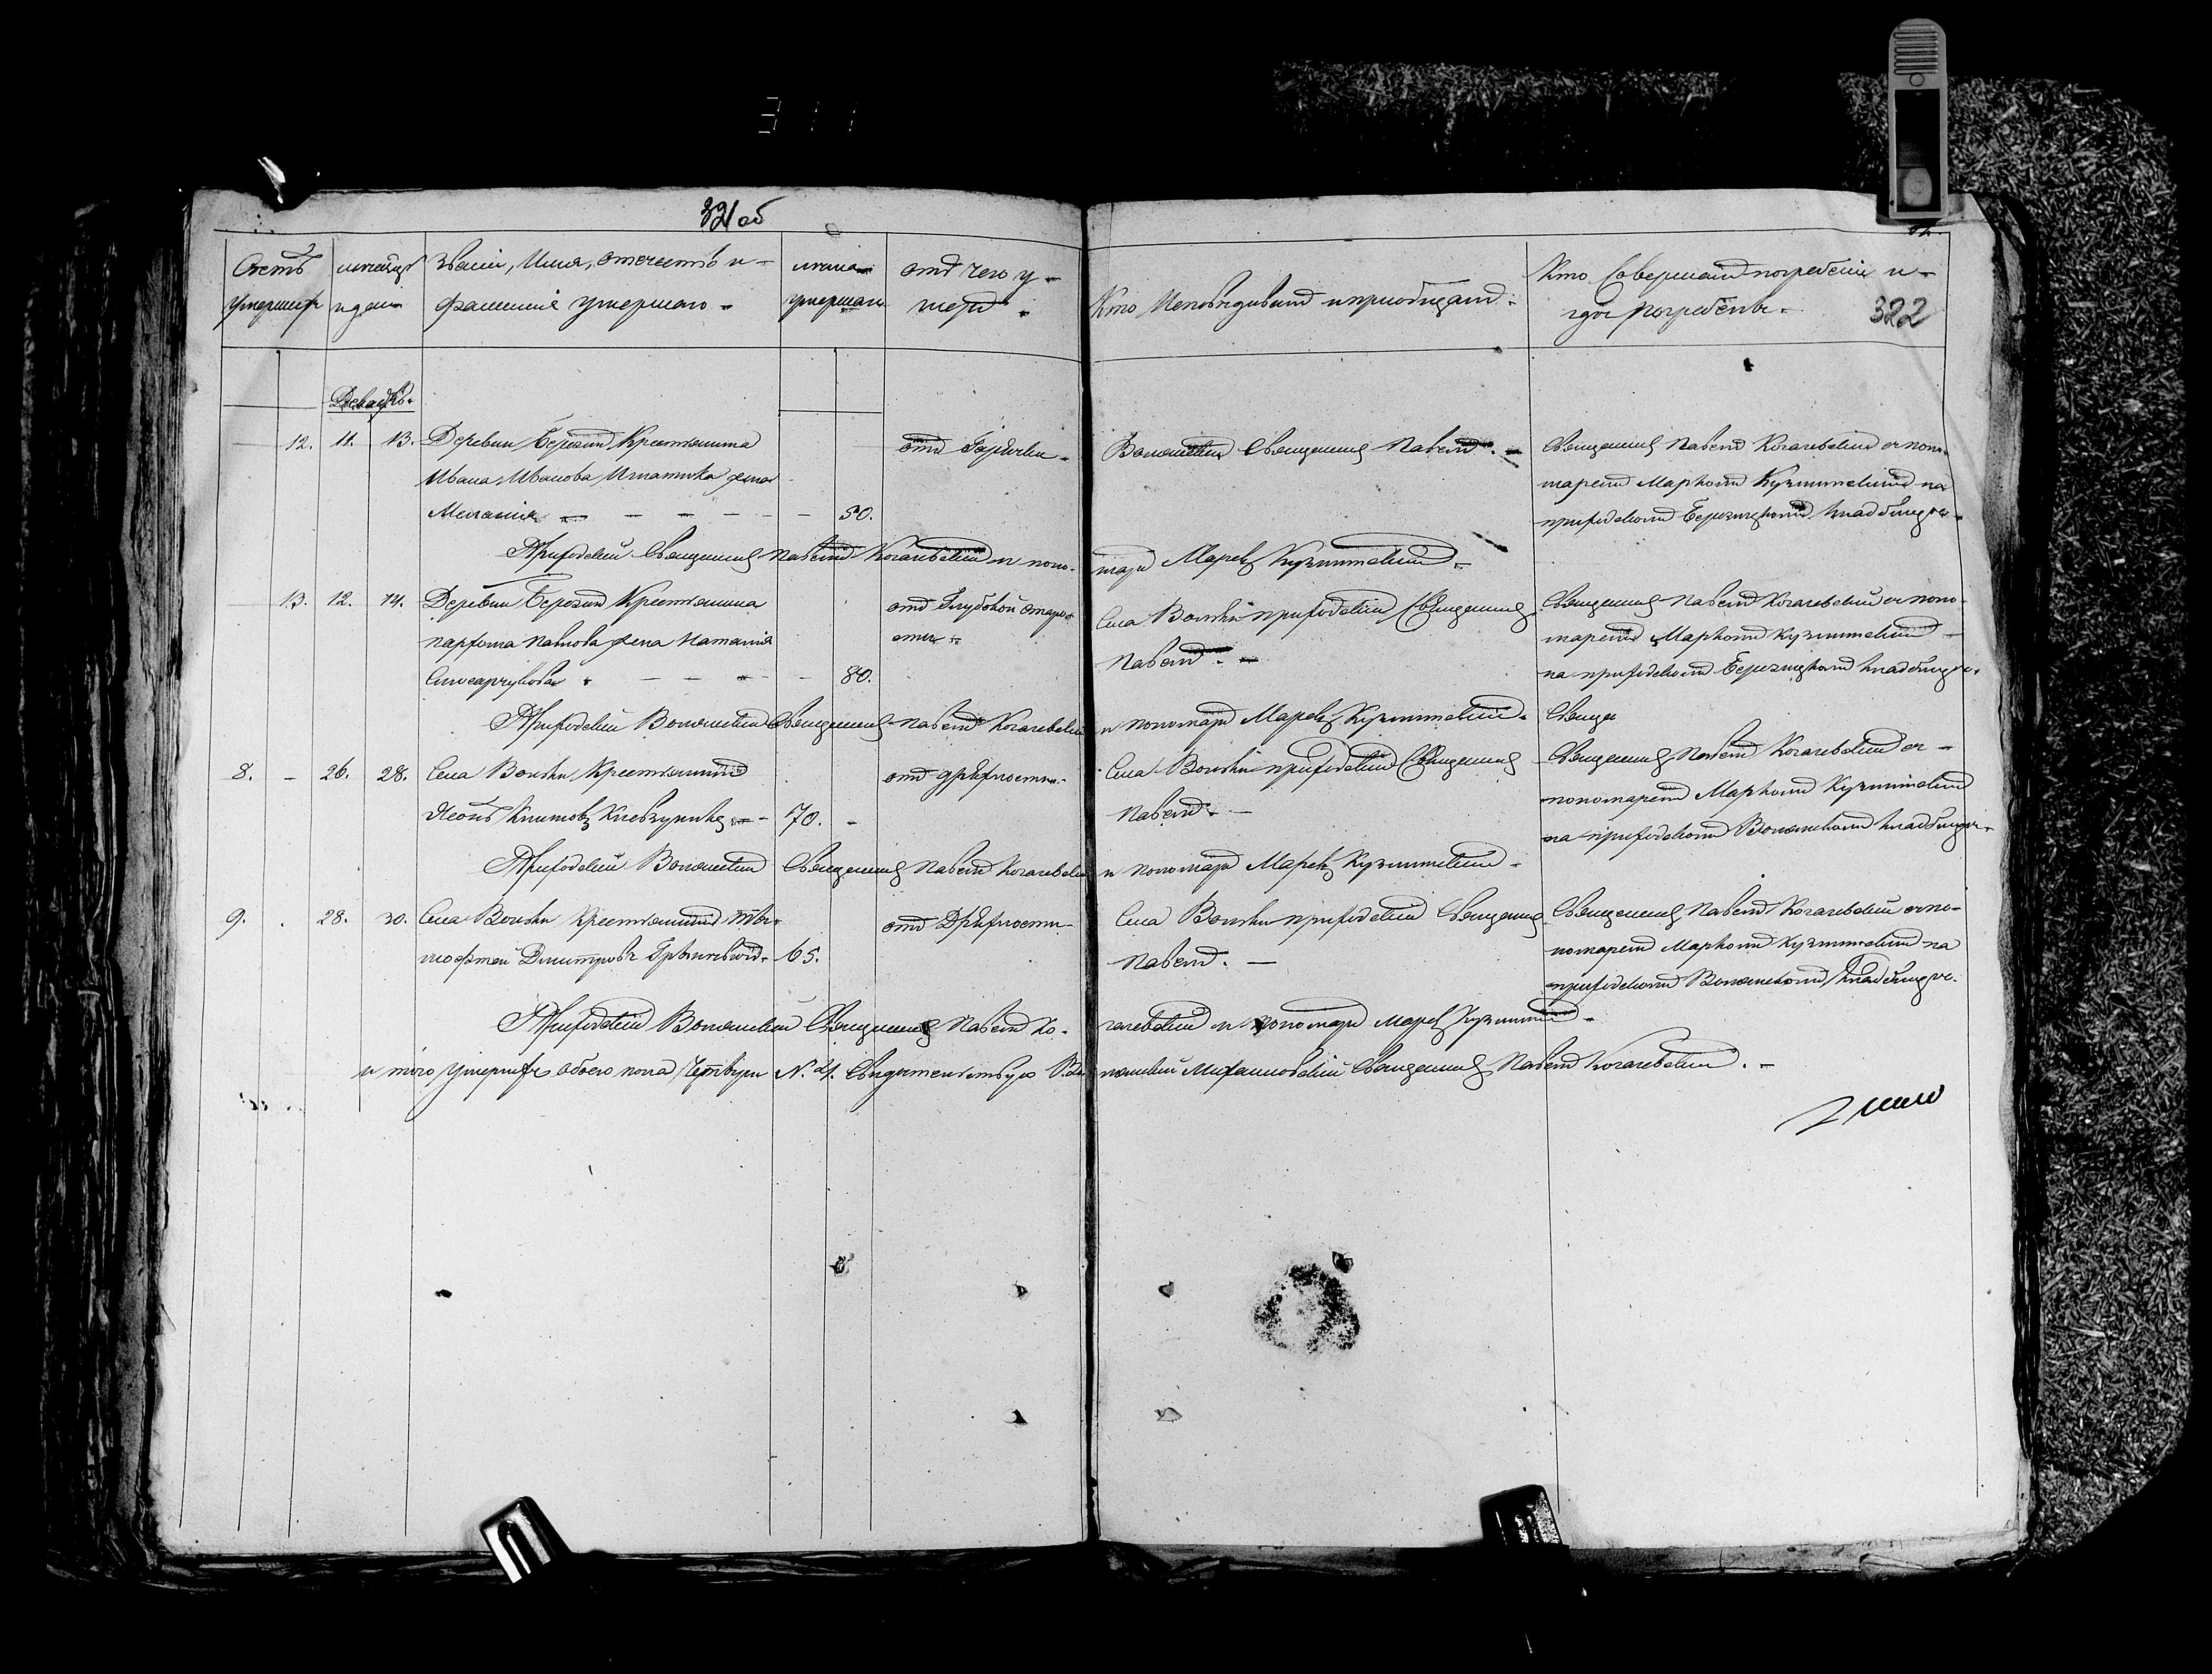 311
321 об
Счетъ умершихъ
месяцъ и день
Званіе, Имя, отечество и фамилія умершаго
лета умершаго
отъ чего умеръ
Кто Исповѣдывалъ и приобщалъ
Кто Совершалъ погребеніе и где погребенъ
322
Декабрь
12. 11. 13. Деревни Березин Крестьянина
Ивана Иванова Игнатика жена
Меланія 50.
отъ Горячки
Волянскій Священникъ Павелъ.
Священникъ Павелъ Когачевскій съ поно-
маремъ Маркомъ Кузминскимъ на
приходскомъ Березицкомъ кладбище.
Приходскій Священникъ Павелъ Когачевскій и поно-
марь Маркъ Кузминскій.
13. 12. 14. Деревни Березин Крестьянина
парфома павлова жена Наталія
80.
отъ Глубокой старо-
сти
Села Вольки приходскій Священникъ
Павелъ.
Священникъ Павелъ Когачевскій съ поно-
маремъ Маркомъ Кузминскимъ
на приходскомъ Березицкомъ кладбище.
Приходскій Волянскій Священникъ Павелъ Когачевскій
и пономарь Маркъ Кузминскій.
Свяще
8. – 26. 28. Села Вольки Крестьянинъ
Леонъ Климовъ 70. –
отъ дряхлости
Села Вольки приходскій Священникъ
Павелъ. –
Священникъ Павелъ Когачевскій съ
пономаремъ Маркомъ Кузминскимъ
на приходскомъ Волянскомъ кладбище.
Приходскій Волянскій Священникъ Павелъ Когачевскій
и пономарь Маркъ Кузминскій
9. . 28. 30. Села Вольки Крестьянинъ
Тимофтей Дмитровъ 65.
отъ Дряхлости
Села Вольки приходскій Священникъ
Павелъ. –
Священникъ Павелъ Когачевскій съ по-
номаремъ Маркомъ Кузминскимъ на
приходскомъ Волянскомъ Кладбище.
Приходскій Волянскій Священникъ Павелъ Ко-
гачевскій и пономарь Маркъ Кузминскій
и того умершихъ обоего пола Четвѣри N. 4. Свидетельствую
Михаиловскій Священникъ Павелъ Когачевскій.